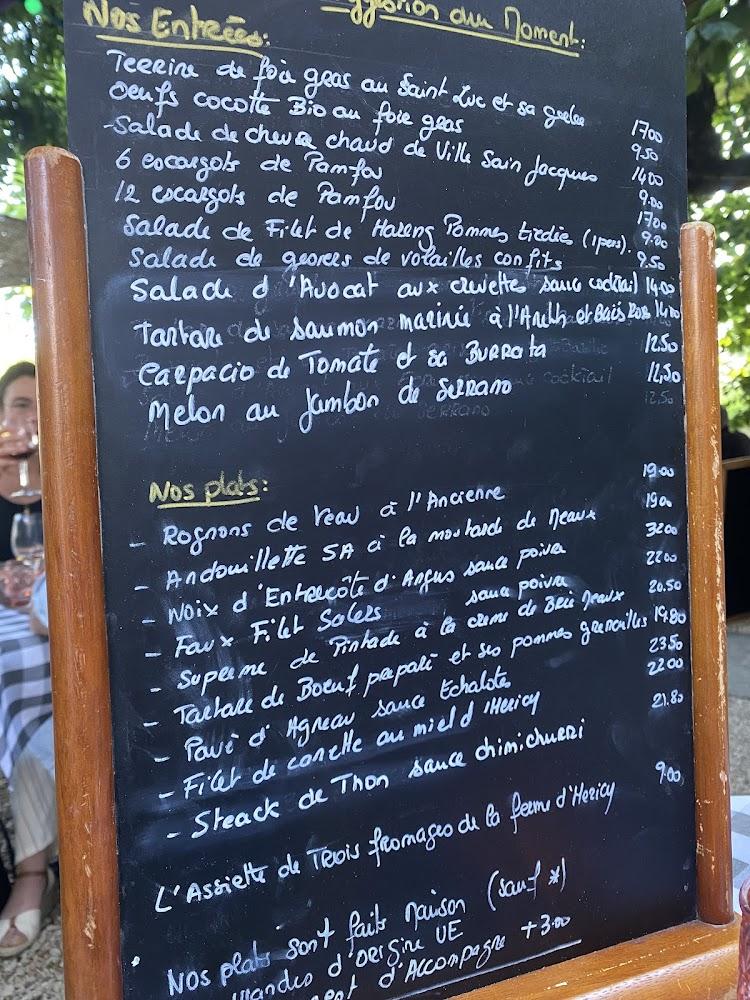 Nos Entrées:
du Moment:
Terrine de foie gras au Saint Luc et sa gelée 17.00
Oeufs cocotte Bio au foie gras 9.50
-Salade de chevre chaud de Ville Sain Jacques 14.00
6 escargots de Pamfou 9.00
12 escargots de Pamfou 17.00
Salade de Filet de Hareng Pommes tiedies (1pers). 9.00
Salade de gesiers de volailles confits 9.50
Salade d'Avocat aux crevettes sauce cocktail 14.00
Tartare de saumon mariné à l'Aneth et Baies Rose 14.00
Carpacio de Tomate et sa Burrata 12.50
Melon au Jambon de Serrano 12,50
Nos plats:
- Rognons de Veau à l'Ancienne 19.00
- Andouillette 5A à la moutarde de Meaux 19.00
- Noix d'Entrecôte d'Angus sauce poivre 32.00
- Faux Filet Salers sauce poivre 22.00
- Supreme de Pintade à la creme de Brie Meaux 20.50
- Tartare de Boeuf préparé et ses pommes grenailles 19.80
- Pavé d'Agneau sauce Echalote 23.50
- Filet de canette au miel d'Hericy 22.00
- Steack de Thon sauce chimichurri 21.80
L'Assiette de Trois fromages de la ferme d'Hericy 9.00
Nos plats sont faits Maison (sauf *)
Viandes d'origine UE
d'Accompagne +3.00